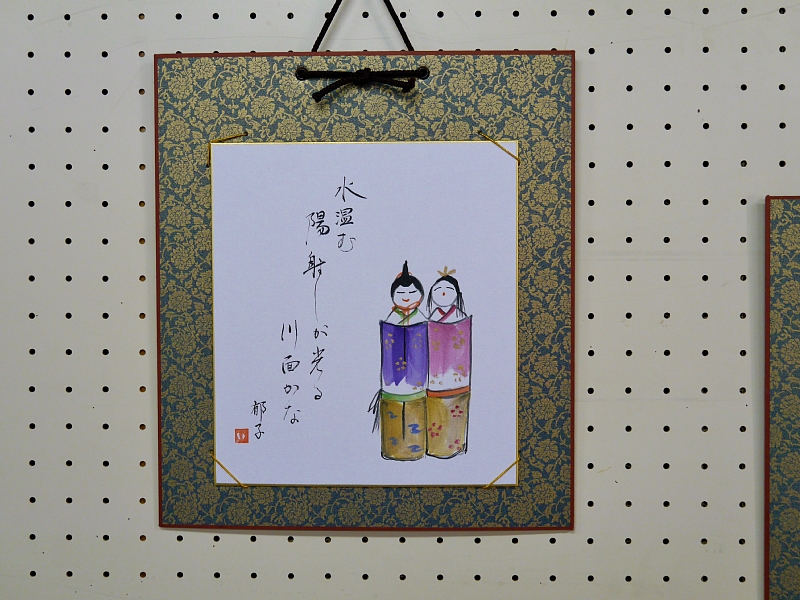 水温む
陽射しが光る
川面かな
郁子